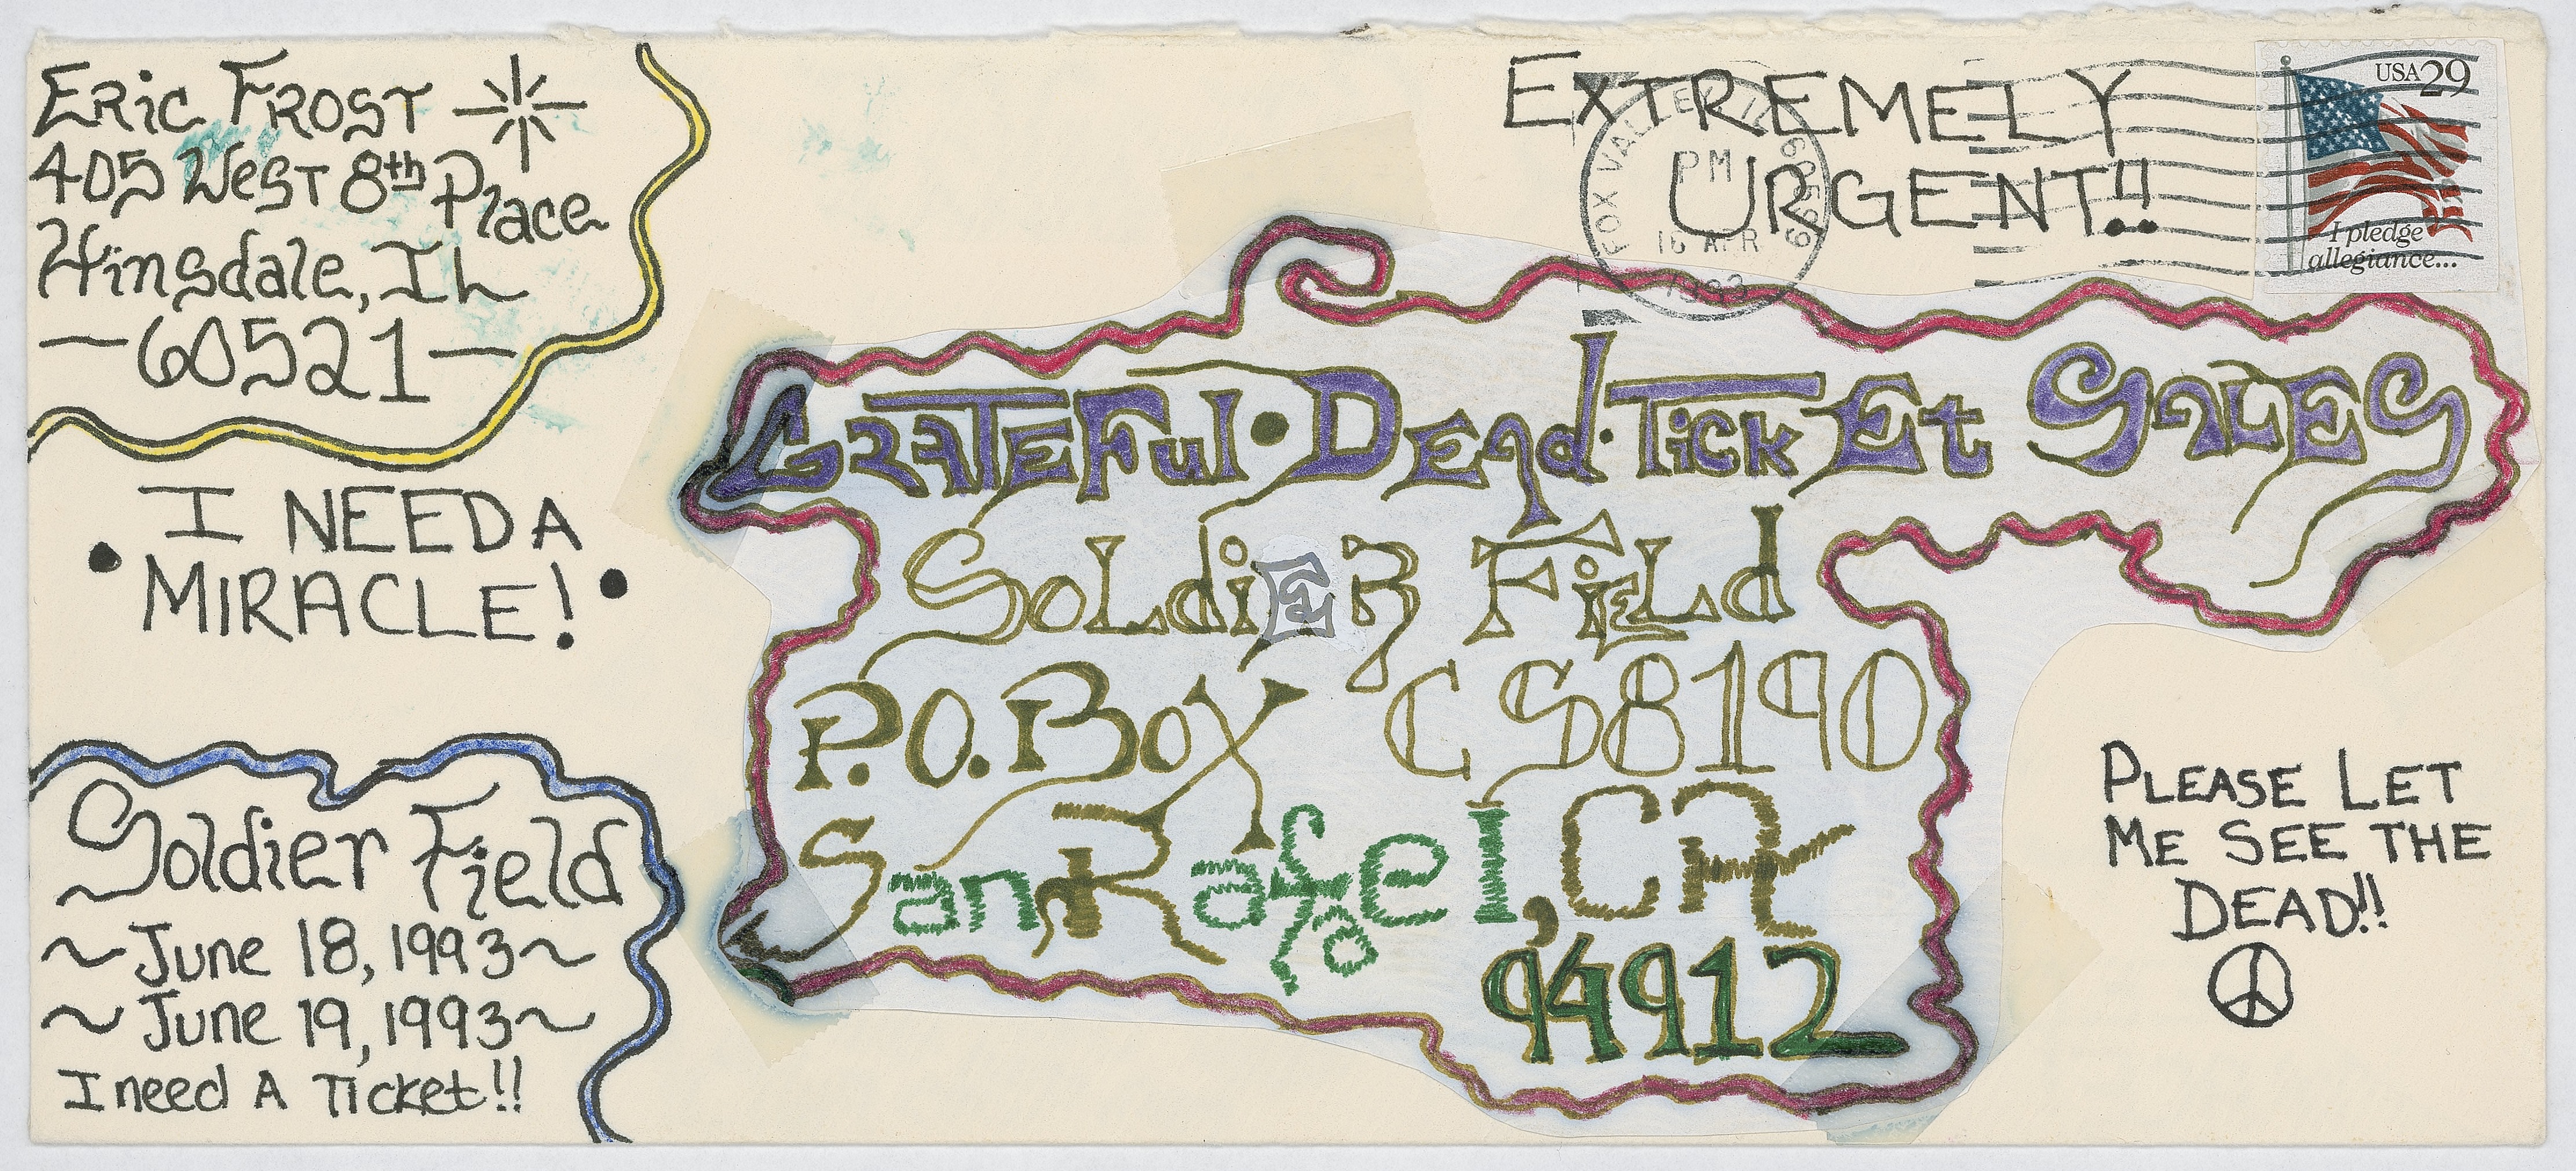 Eric Frost
405 West 8th Place
Hinsdale, IL
—60521—
EXTREMELY
URGENT!!
FOX VALLEY IL 60599
PM
16 APR
1993
USA 29
I pledge
allegiance...
GRATEFul • DEad • TickEt SALES
SoLdiER FiELd
P.O. Box CS8190
San Rafael, CA
94912
I NEED A
• MIRACLE! •
Soldier Field
~ June 18, 1993 ~
~ June 19, 1993 ~
I need A Ticket!!
PLEASE LET
ME SEE THE
DEAD!!